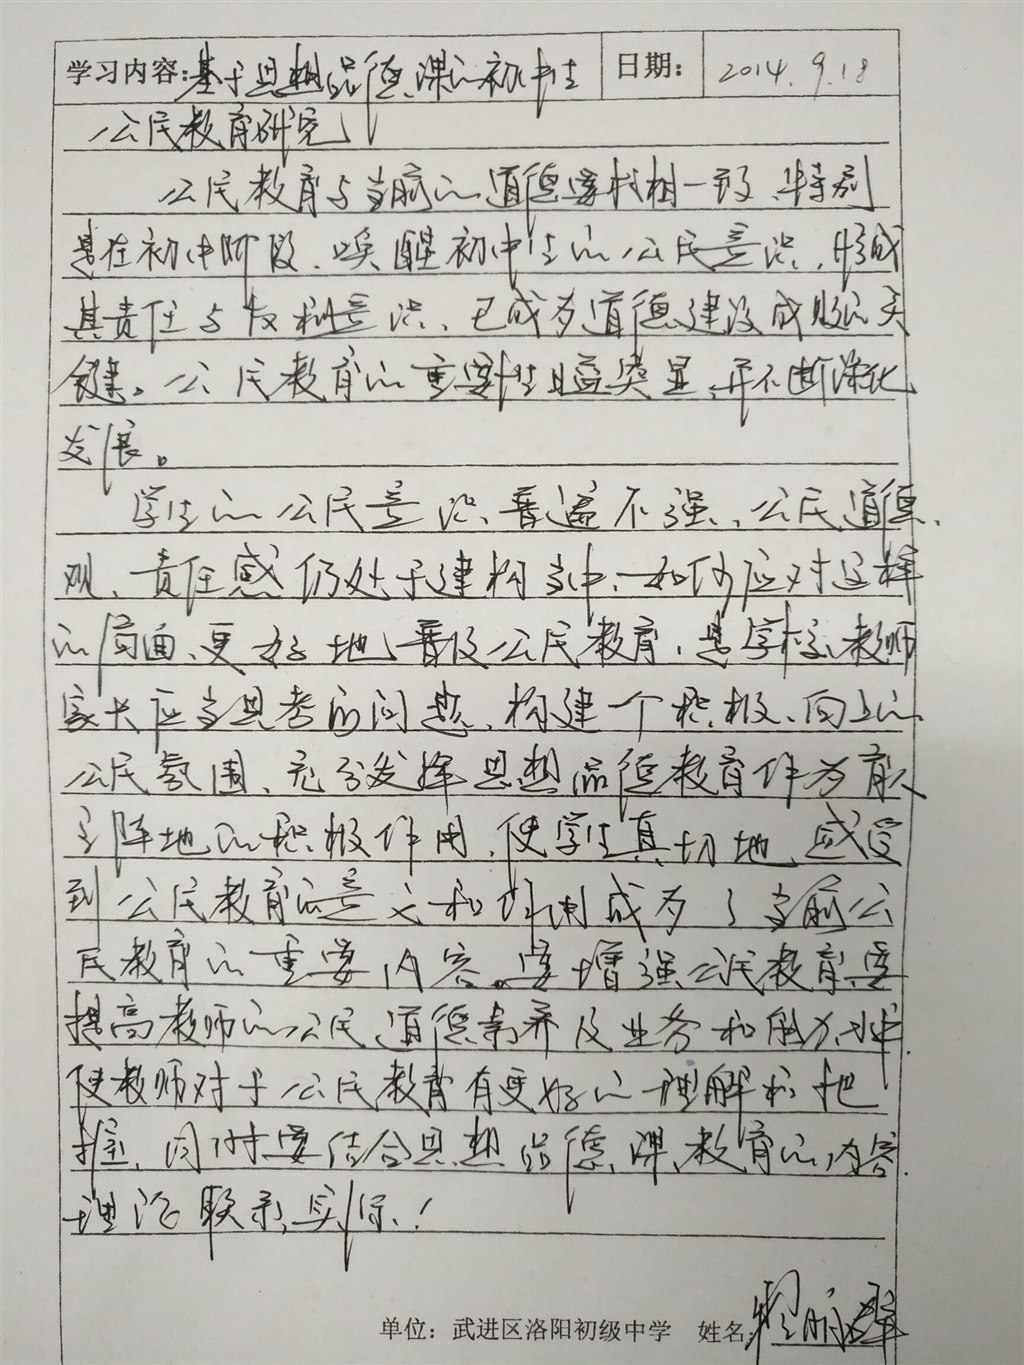 学习内容:基于思想品德课的初中生 日期: 2014.9.18
公民教育研究
公民教育与当前的道德要求相一致、特别
是在初中阶段、唤醒初中生的公民意识，形成
其责任与权利意识、已成为道德建设成败的关
键。公民教育的重要性日益突显，并不断深化
发展。
学生的公民意识普遍不强、公民道德
观、责任感仍处于建构当中、如何应对这样
的局面、更好地普及公民教育，是学校、教师
家长应当思考的问题、构建一个积极、向上的
公民氛围、充分发挥思想品德教育作为育人
主阵地的积极作用，使学生真切地感受
到公民教育的意义和作用成为了当前公
民教育的重要内容。要增强公民教育要
提高教师的公民道德素养及业务和能力水平.
使教师对于公民教育有更好的理解和把
握、同时要结合思想品德课教育的内容.
理论联系实际！
单位：武进区洛阳初级中学 姓名: